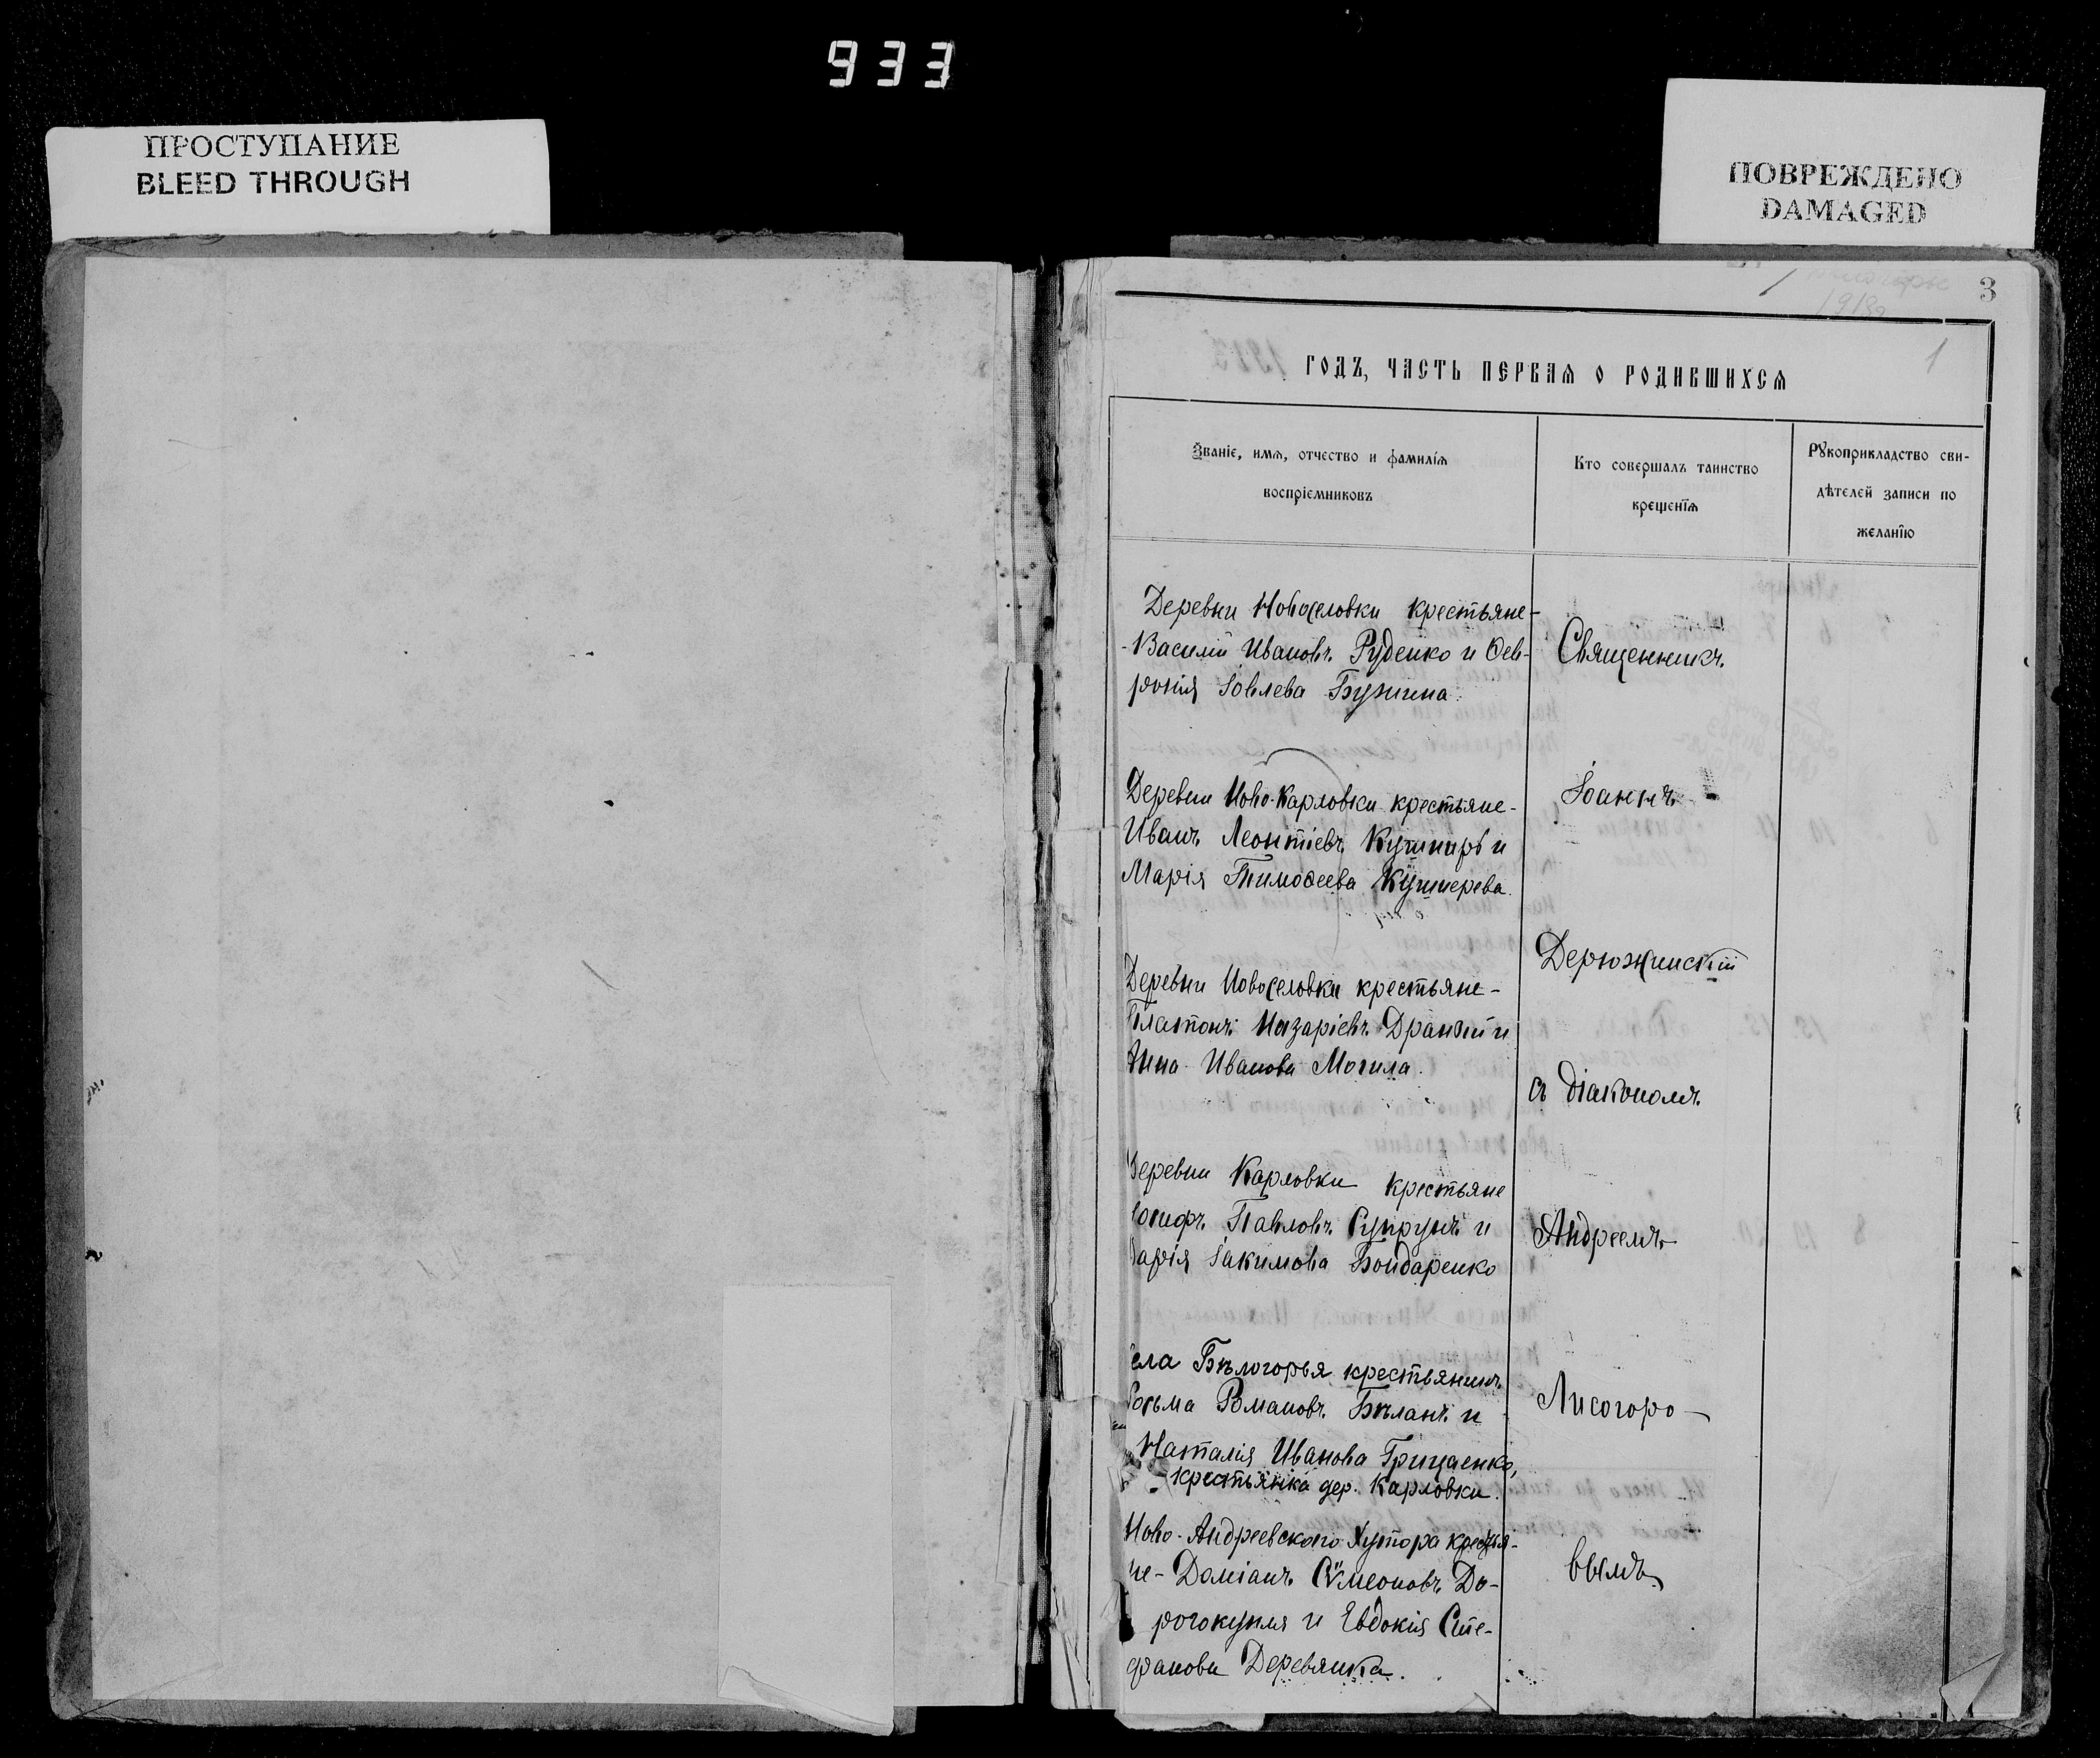 933
ПРОСТУПАНИЕ
BLEED THROUGH
ПОВРЕЖДЕНО
DAMAGED
3
1
годъ, часть первая о родившихся
Званіе, имя, отчество и фамилія
воспріемниковъ
Кто совершалъ таинство
крещенїя
Рукоприкладство сви-
дѣтелей записи по
желанїю
Деревни Новоселовки крестьяне-
Василій Ивановъ Руденко и Фев-
ронія Іовлева Бужина.
Деревни Ново-Карловки крестьяне-
Иванъ Леонтіевъ Кушниръ и
Марія Тимоѳеева Кушнерева.
Деревни Новоселовки крестьяне-
Платонъ Назаріевъ Дранный и
Анна Иванова Могила.
Деревни Карловки крестьяне
Іосифъ Павловъ Супрунъ и
Марія Іакимова Бондаренко
Села Бѣлогорья крестьянинъ
Косьма Романовъ Бѣланъ и
Наталія Иванова Грицаенко,
крестьянка дер. Карловки.
Ново-Андреевскаго Хутора крестья-
не- Доміанъ Сѵмеоновъ До-
рогокупля и Евдокія Сте-
фанова Деревянка.
Священникъ
Іоаннъ
Дерюжинскій
съ діакономъ
Андреемъ
Лисогоро-
вымъ